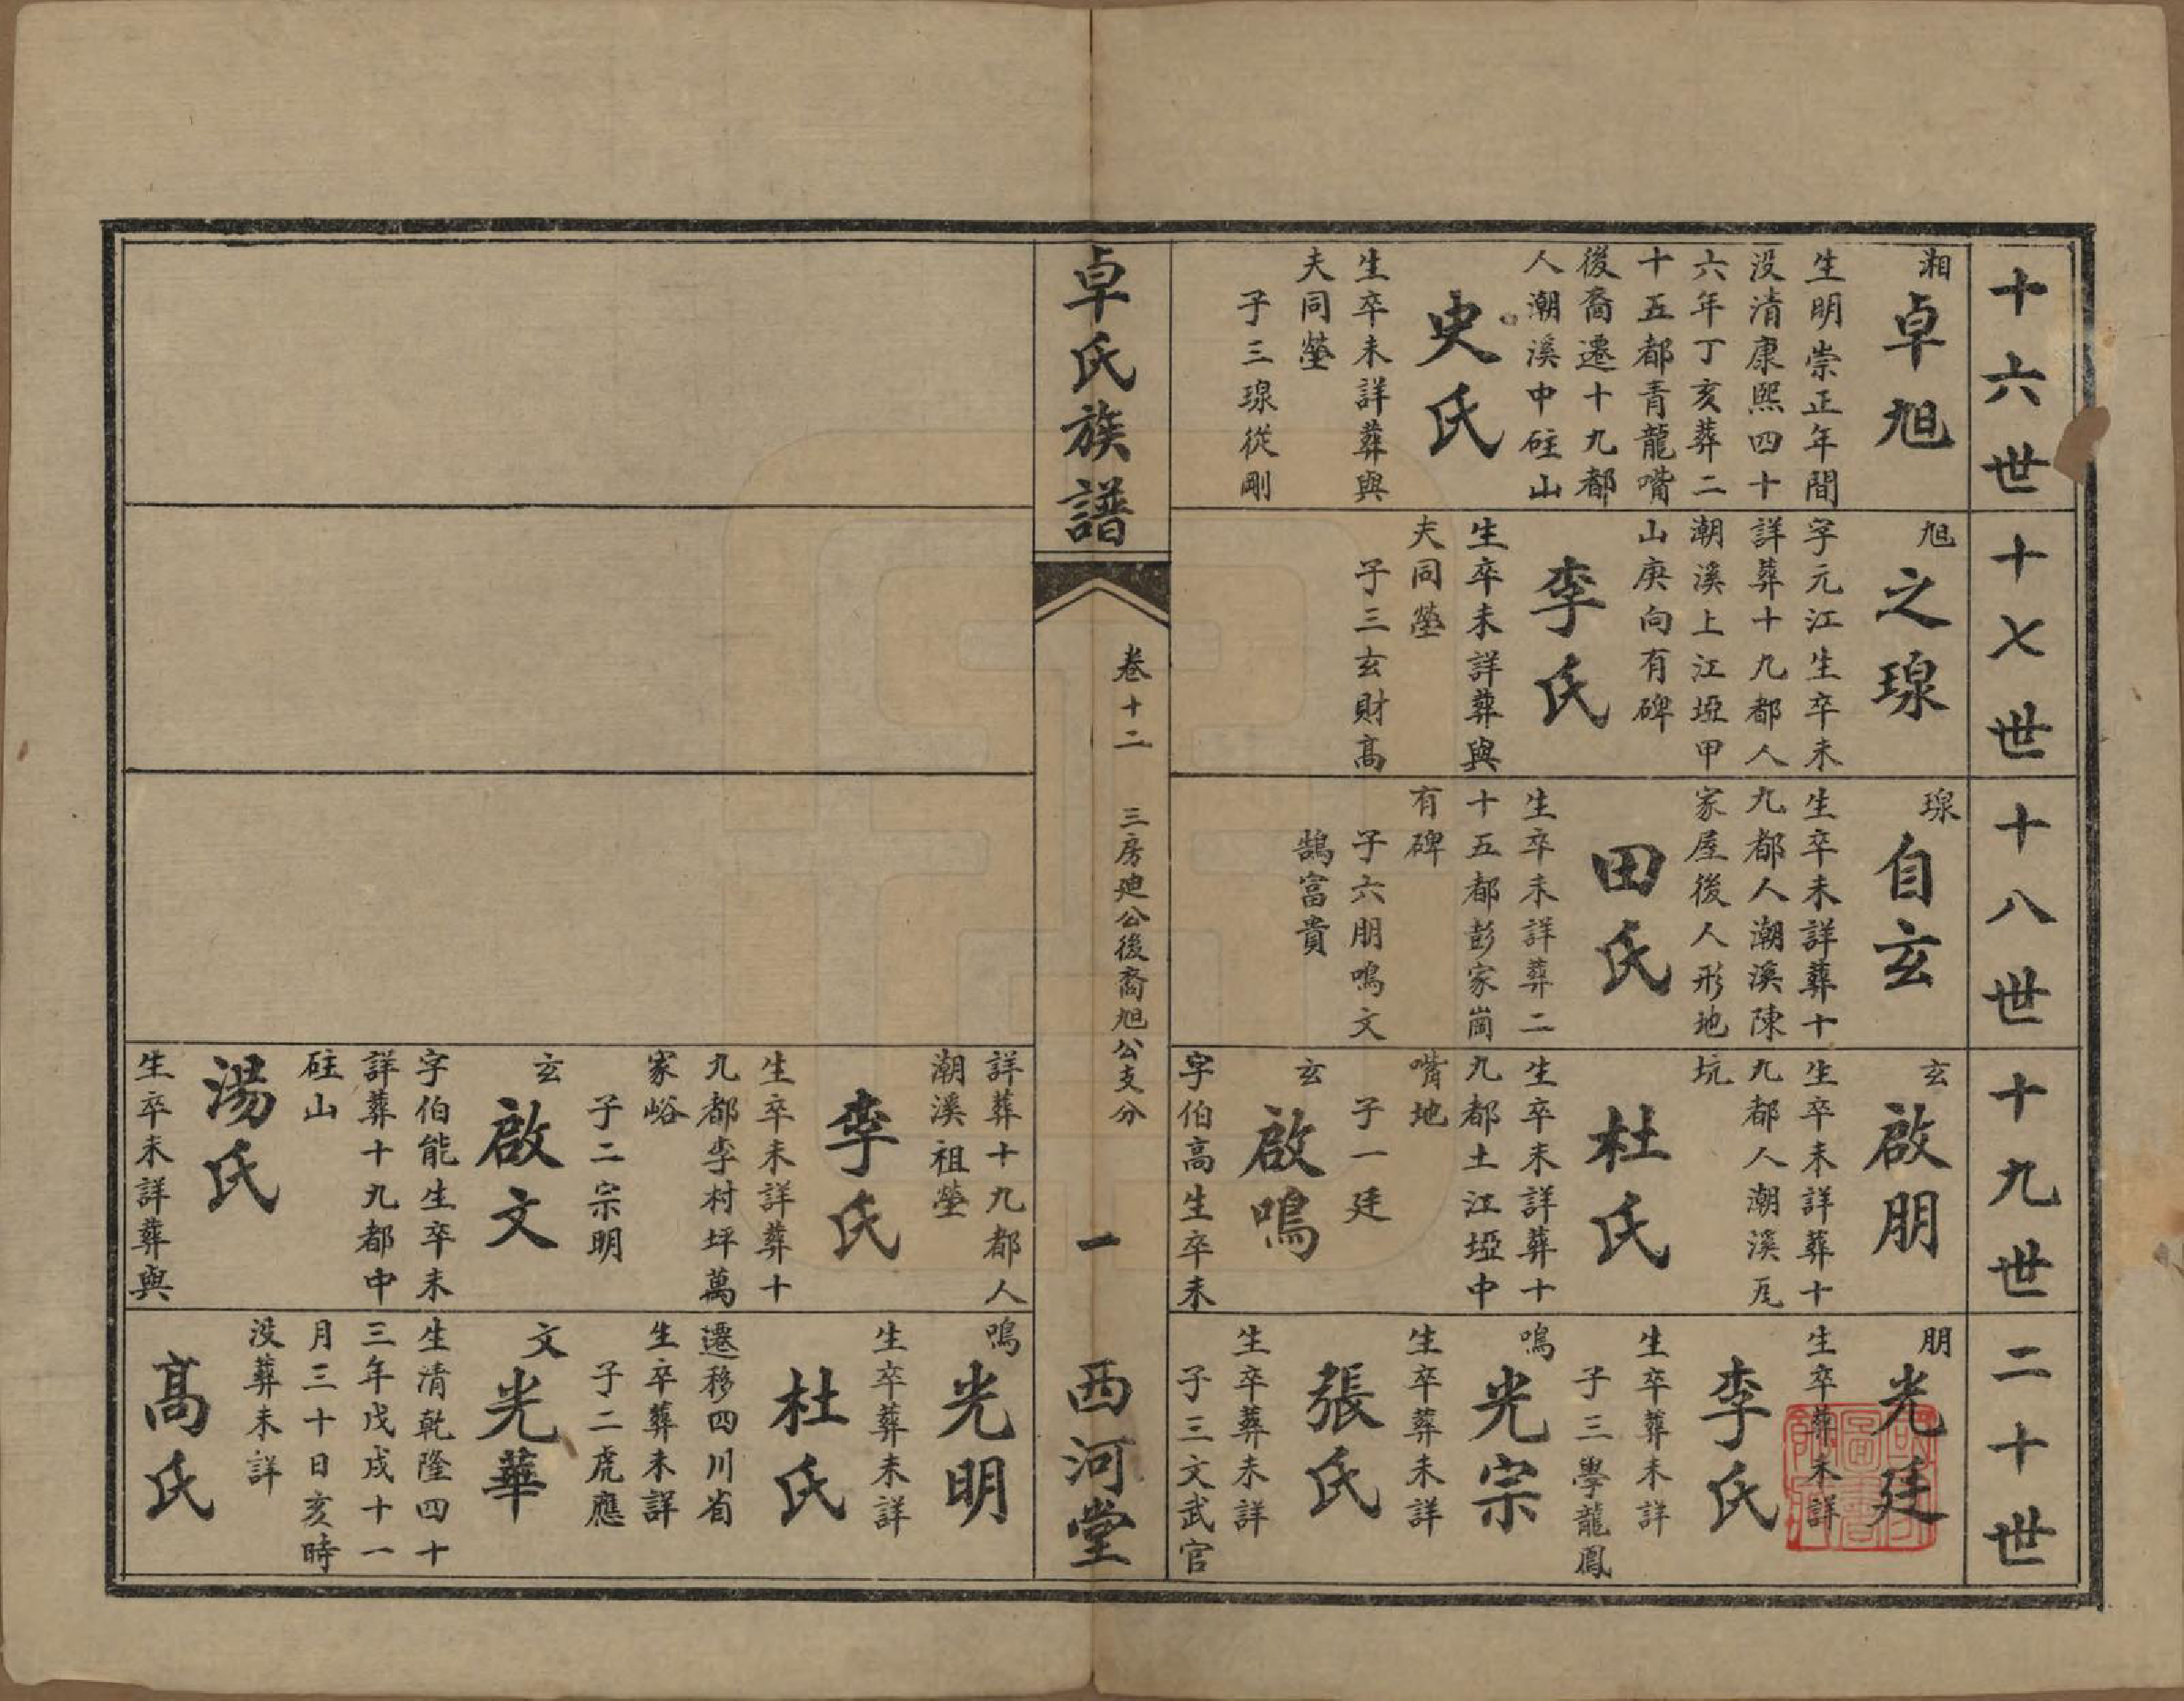 十六世
湘
卓旭
生明崇正年間
没清康熙四十
六年丁亥葬二
十五都青龍嘴
後裔遷十九都
人潮溪中砫山
史氏
生卒未詳葬與
夫同塋
子三瑔從剛
十七世
旭
之瑔
字元江生卒未
詳葬十九都人
潮溪上江埡甲
山庚向有碑
李氏
生卒未詳葬與
夫同塋
子三玄財高
十八世
瑔
自玄
生卒未詳葬十
九都人潮溪陳
家屋後人形地
田氏
生卒未詳葬二
十五都彭家崗
有碑
子六朋鳴文
鵠富貴
十九世
玄
啟朋
生卒未詳葬十
九都人潮溪瓦
坑
杜氏
生卒未詳葬十
九都土江埡中
嘴地
子一廷
玄
啟鳴
字伯高生卒未
二十世
朋
光廷
生卒葬未詳
李氏
生卒葬未詳
子三學龍鳳
鳴
光宗
生卒葬未詳
張氏
生卒葬未詳
子三文武官
卓氏族譜
卷十二
三房廸公後裔旭公支分
一
西河堂
詳葬十九都人
潮溪祖塋
李氏
生卒未詳葬十
九都李村坪萬
家峪
子二宗明
玄
啟文
字伯能生卒未
詳葬十九都中
砫山
湯氏
生卒未詳葬與
鳴
光明
生卒葬未詳
杜氏
遷移四川省
生卒葬未詳
子二虎應
文
光華
生清乾隆四十
三年戊戌十一
月三十日亥時
没葬未詳
高氏